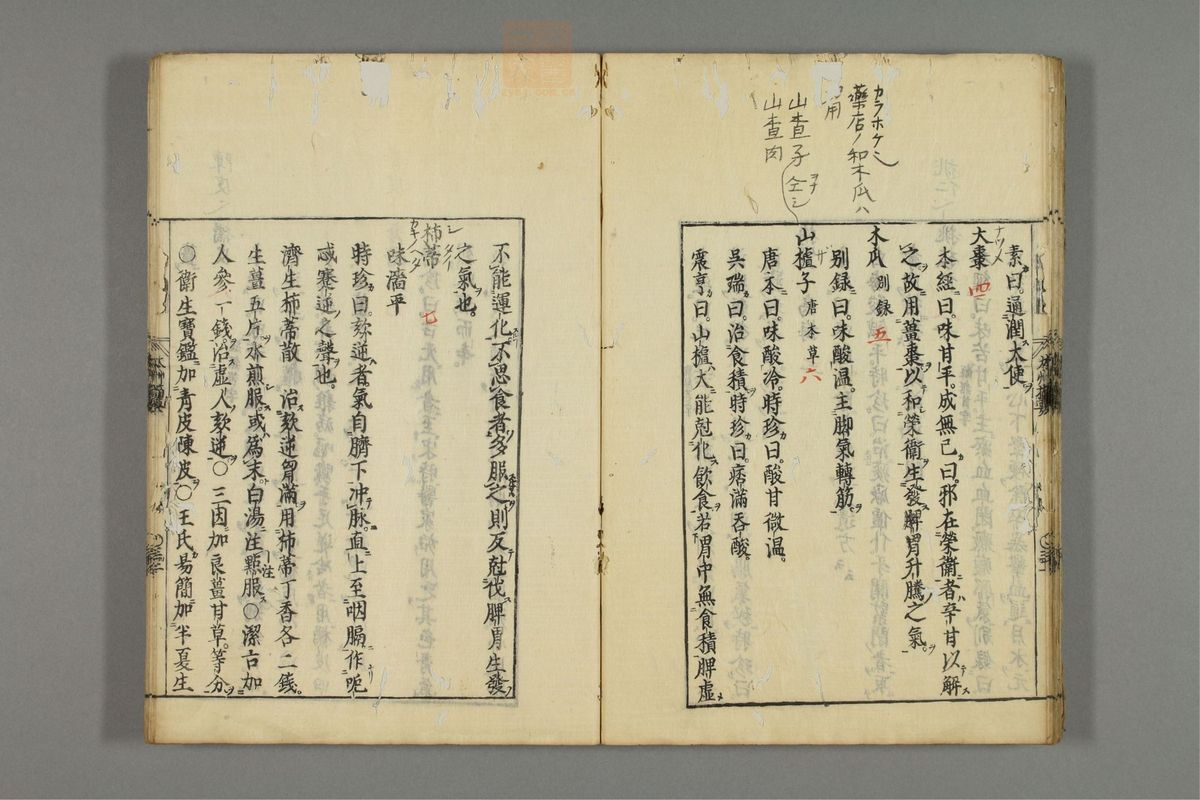 カラホケシ
藥店ノ和木瓜ハ
用
山査子
山査肉
素曰。通潤大便
大棗 四
本經曰。味甘平。成無己曰。邪在榮衞者。辛甘以解
之。故用薑棗以和榮衞。生發脾胃升騰之氣。
木瓜 別錄 五
別錄曰。味酸溫。主脚氣轉筋。
山樝子 唐本草 六
唐本曰。味酸冷。時珍曰。酸甘微溫。
吳瑞曰。治食積。時珍曰。痞滿吞酸。
震亨曰。山樝大能尅化飲食。若胃中無食積。脾虛
不能運化。不思食者。多服之。則反尅伐脾胃生發
之氣也。
柿蒂 七
味濇平
時珍曰。欬逆者。氣自臍下冲脉。直上至咽膈。作呃
忒蹇逆之聲也。
濟生柿蒂散。治欬逆胷滿。用柿蒂丁香各二錢。
生薑五片。水煎服。或爲末。白湯注點服。○潔古加
人參一錢。治虛人欬逆。○三因加良薑甘草。等分。
○衛生寶鑑加靑皮陳皮。○王氏易簡加半夏生